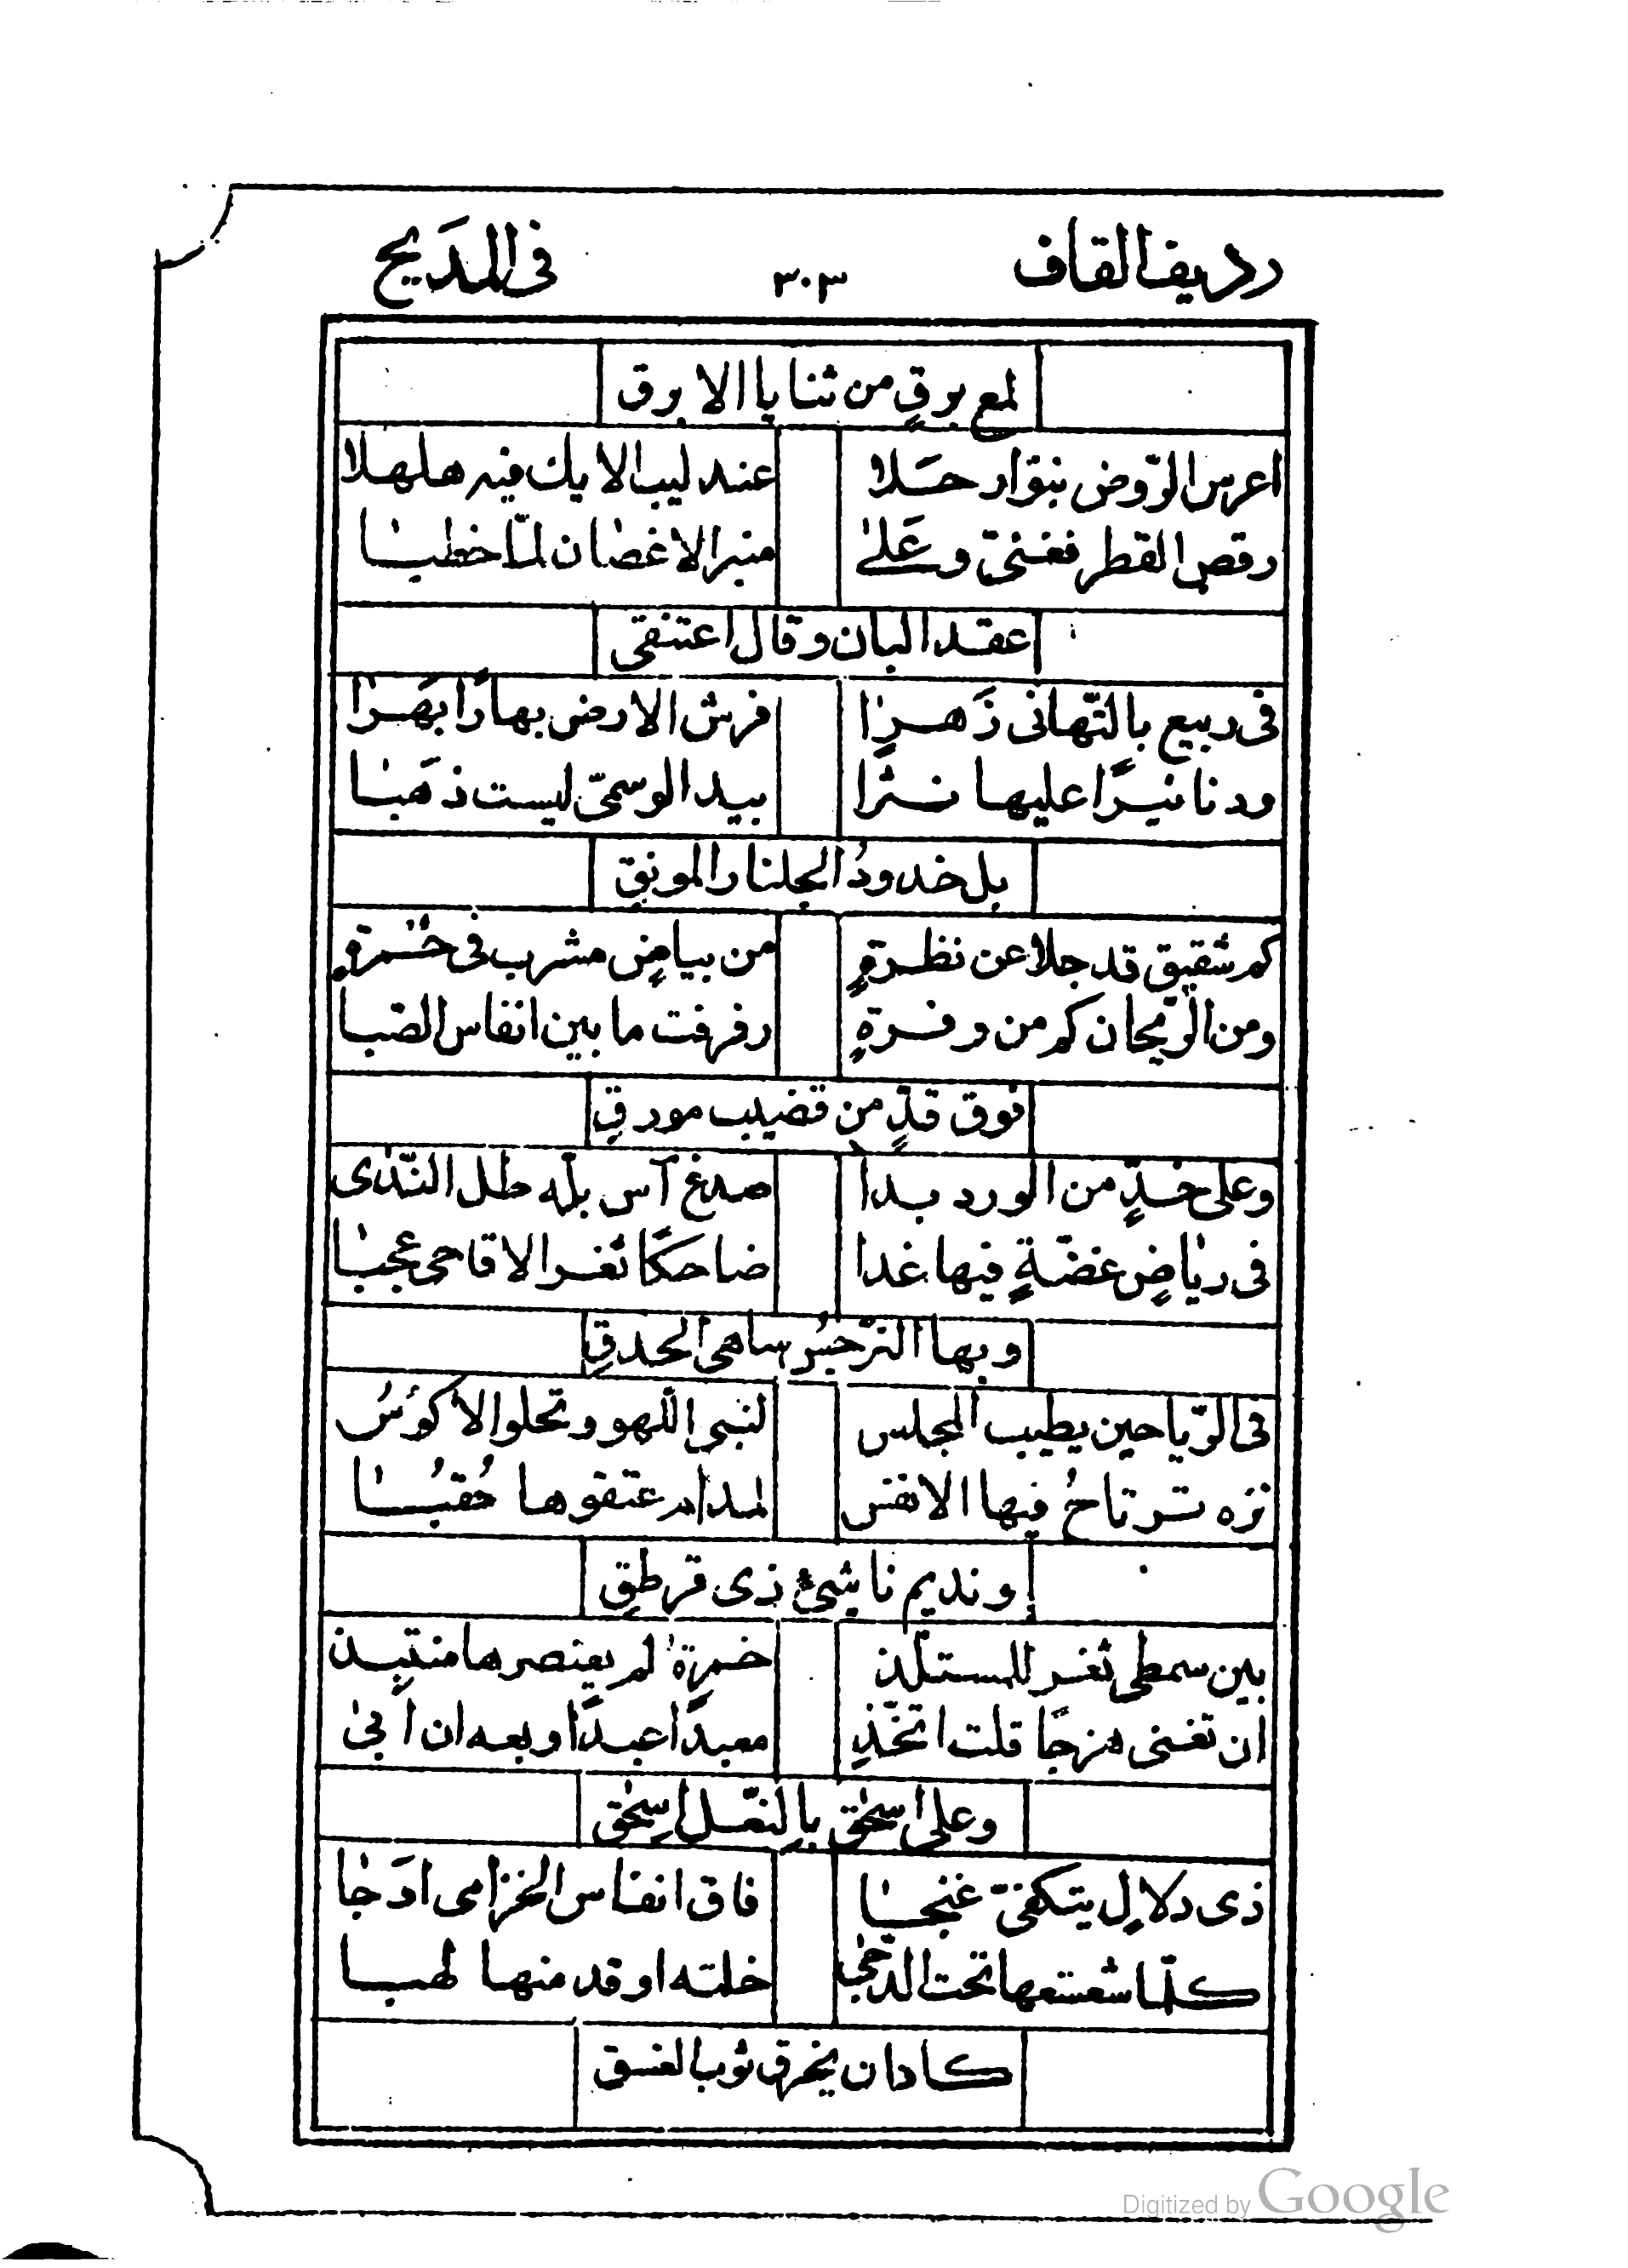 رديف القاف ٣٠٣ فى المَديح
لمع برقٍ من ثنايا الابرق
اعرس الرّوض بنوّار حَلا عندليب الايك فيه هلهلا
رقص القطر فغنىّ وعَلىٰ منبر الاغصان لمّا خطبا
عقد البان وقال اعتنقى
فى ربيع بالتّهانى زَهرا فرش الارض بهارًا بهَرَا
ودنانيرًا عليها نثرا بيد الوسمىّ ليست ذهَبا
بل خدودُ الجلنار المونقِ
كم شقيق قد جلا عن نظرةٍ من بياضٍ مشرب فى حُمرةٍ
ومن الرّيحان كم من وفرةٍ رفرفت ما بين انفاس الصّبا
فوق قدٍّ من قضيب مورقِ
وعلى خدٍّ من الورد بدا صدغ آس بلّه طل النّدى
فى رياضٍ غضّةٍ فيها غدا ضاحكًا ثغر الاقاحى عجبا
وبها النرّجسُ ساهى الحدقِ
فى الرّياحين يطيب المجلس لنبى اللّهو وتحلو الاكؤسُ
نزه ترتاحُ فيها الانفس لمدام عتقوها حُقبُا
ونديم ناشئ ذى قرطقِ
بين سمطى ثغر للمستلّذ خمرة لم يعتصرها منتبِذ
ان تغنى هزجًا قلت اتخّذِ معبدًا عبدًا وبعه ان ابىٰ
وعلى اسحٰق بالنعّل اسحٰقِ
ذى دلالٍ يتكفىّ غنجا فاق انفاس الخزامى ارَجا
كلّما شعشعها تحت الدّجىٰ خلته اوقد منها لهبا
كادان يخرق ثوب الغسق
Digitized by Google